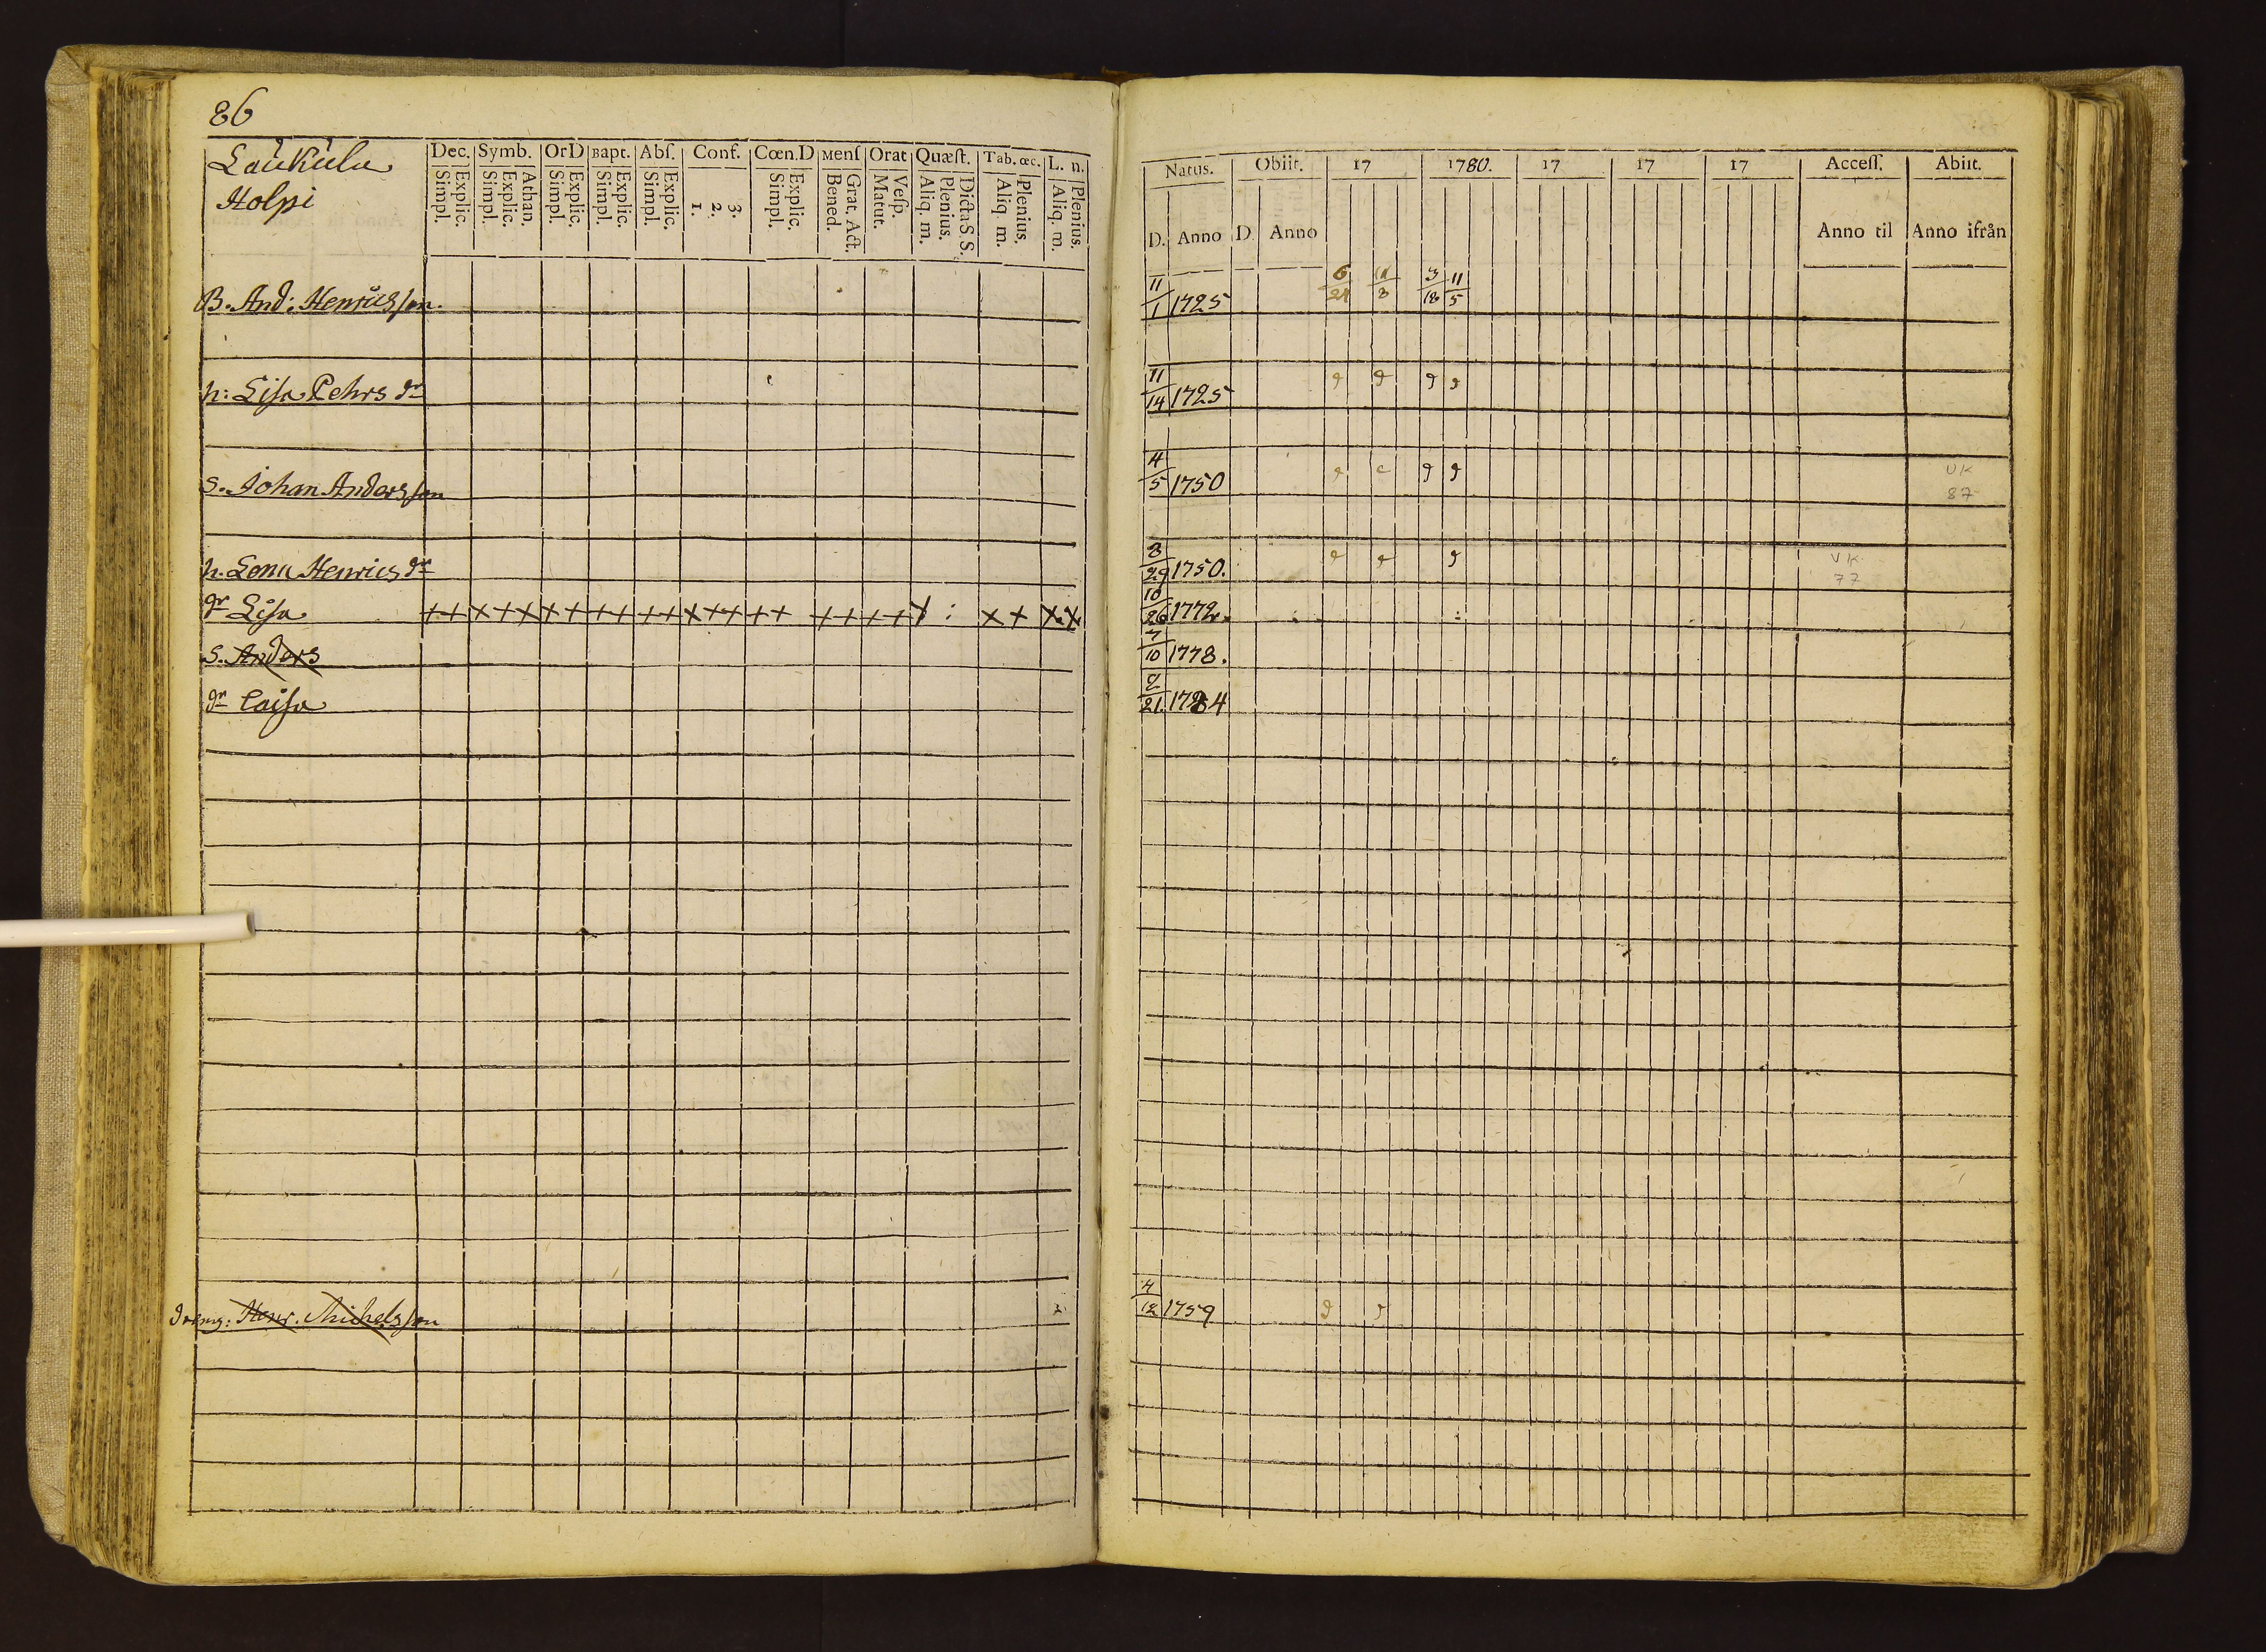 86
Laukula
Holpi
Dec. Symb. OrD Bapt. Abſ. Conf. Cœn.D Menſ Orat Quæſt. Tab. œc. L. n.
Simpl. Explic. Simpl. Explic. Athan. Simpl. Explic. Simpl. Explic. Simpl. Explic. 1. 2. 3. Simpl. Explic. Bened. Grat. Act. Matut. Veſp. Aliq. m. Plenius. Dicta S. S. Aliq. m. Plenius. Aliq. m. Plenius.
Natus. Obiit. 17 1780. 17 17 17 Acceſſ. Abiit.
D. Anno D. Anno Anno til Anno ifrån
B. And: Henricsson. 11/1 1725 6/24 11/8 3/18 11/5
h: Lisa Pehrs dr 11/14 1725
S. Johan Andersson 4/5 1750 UK 87
h. Lena Henrics dr 3/29 1750. VK 77
dr Lisa ++ x++ x+ ++ ++ x++ ++ ++ ++ + : x+ x.x 10/26 1772.
S. Anders 7/10 1778.
dr Caisa 2/21. 1784
Henr. Michelsson 4/12 1759